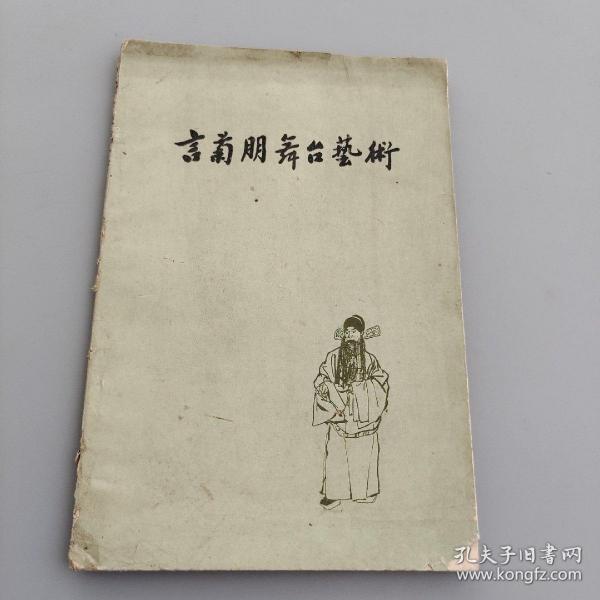 言菊朋舞台藝術
孔夫子旧書网
www.kongfz.com